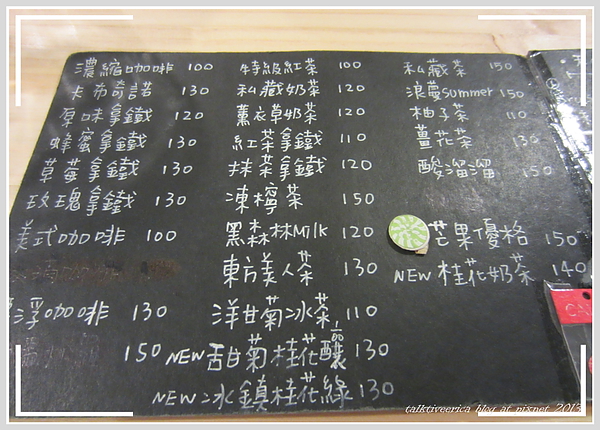 濃縮咖啡 100
卡布奇諾 130
原味拿鐵 120
蜂蜜拿鐵 130
草莓拿鐵 130
玫瑰拿鐵 130
美式咖啡 100
浮咖啡 130
150
特級紅茶 100
私藏奶茶 120
薰衣草奶茶 120
紅茶拿鐵 110
抹茶拿鐵 120
凍檸茶 150
黑森林Milk 120
東方美人茶 130
洋甘菊冰茶 110
NEW 甜菊桂花釀 130
NEW 冰鎮桂花綠 130
私藏茶 150
浪漫summer 150
柚子茶 110
薑花茶 130
酸溜溜 150
芒果優格 150
NEW 桂花奶茶 140
talktiveerica blog at pixnet 2013